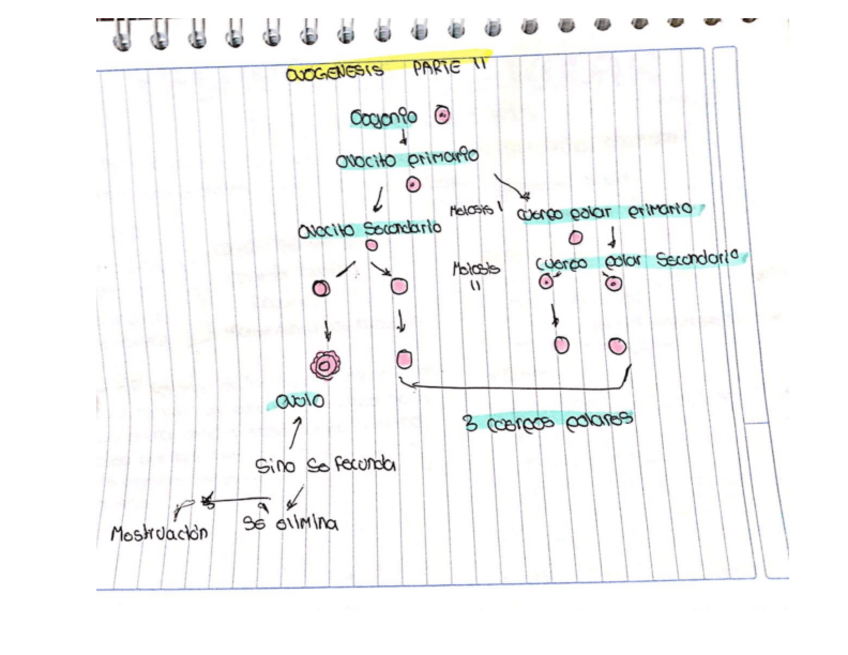 OVOGENESIS PARTE II
Oogonio
Ovocito primario
Meiosis I
Cuerpo polar primario
Ovocito Secundario
Meiosis
II
Cuerpo polar Secundario
Ovulo
3 cuerpos polares
Sino Se fecunda
Se elimina
Mestruación